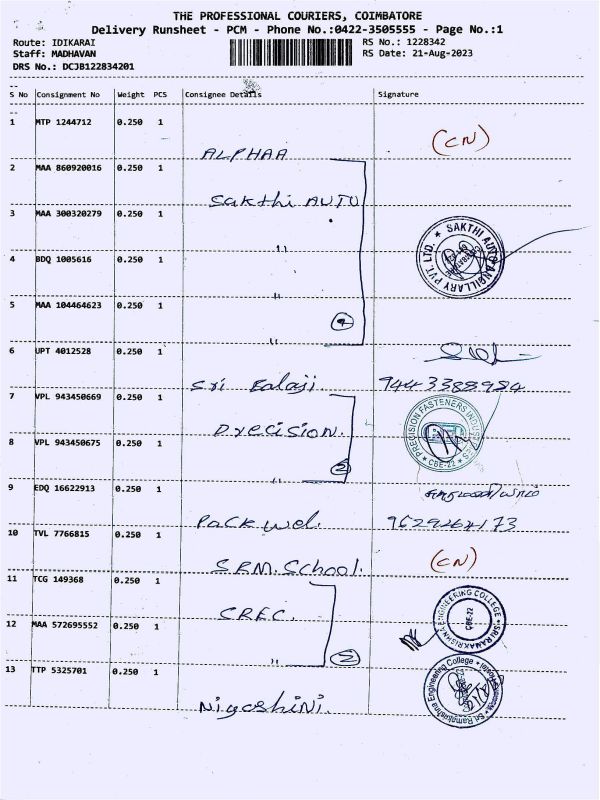 THE PROFESSIONAL COURIERS, COIMBATORE
Delivery Runsheet - PCM - Phone No.:0422-3505555 - Page No.:1
Route: IDIKARAI RS No.: 1228342
Staff: MADHAVAN RS Date: 21-Aug-2023
DRS No.: DCJB122834201
S No Consignment No Weight PCS Consignee Details Signature
1 MTP 1244712 0.250 1
ALPHAA (CN)
2 MAA 860920016 0.250 1
Sakthi AUTO
3 MAA 300320279 0.250 1
"
SAKTHI AUTO ANCILLARY PVT. LTD.
4 BDQ 1005616 0.250 1
"
5 MAA 104464623 0.250 1
" 4
6 UPT 4012528 0.250 1
Sri Balaji. 9443388984
7 VPL 943450669 0.250 1
Precision.
PRECISION FASTENERS INDUSTRIES CBE-22
8 VPL 943450675 0.250 1
" 2
9 EDQ 16622913 0.250 1
Pack wel. 9629264173
10 TVL 7766815 0.250 1
SRM. School. (CN)
11 TCG 149368 0.250 1
SREC.
SRI RAMAKRISHNA ENGINEERING COLLEGE CBE-22
12 MAA 572695552 0.250 1
" 2
13 TTP 5325701 0.250 1
Niyoshini.
Sri Ramakrishna Engineering College